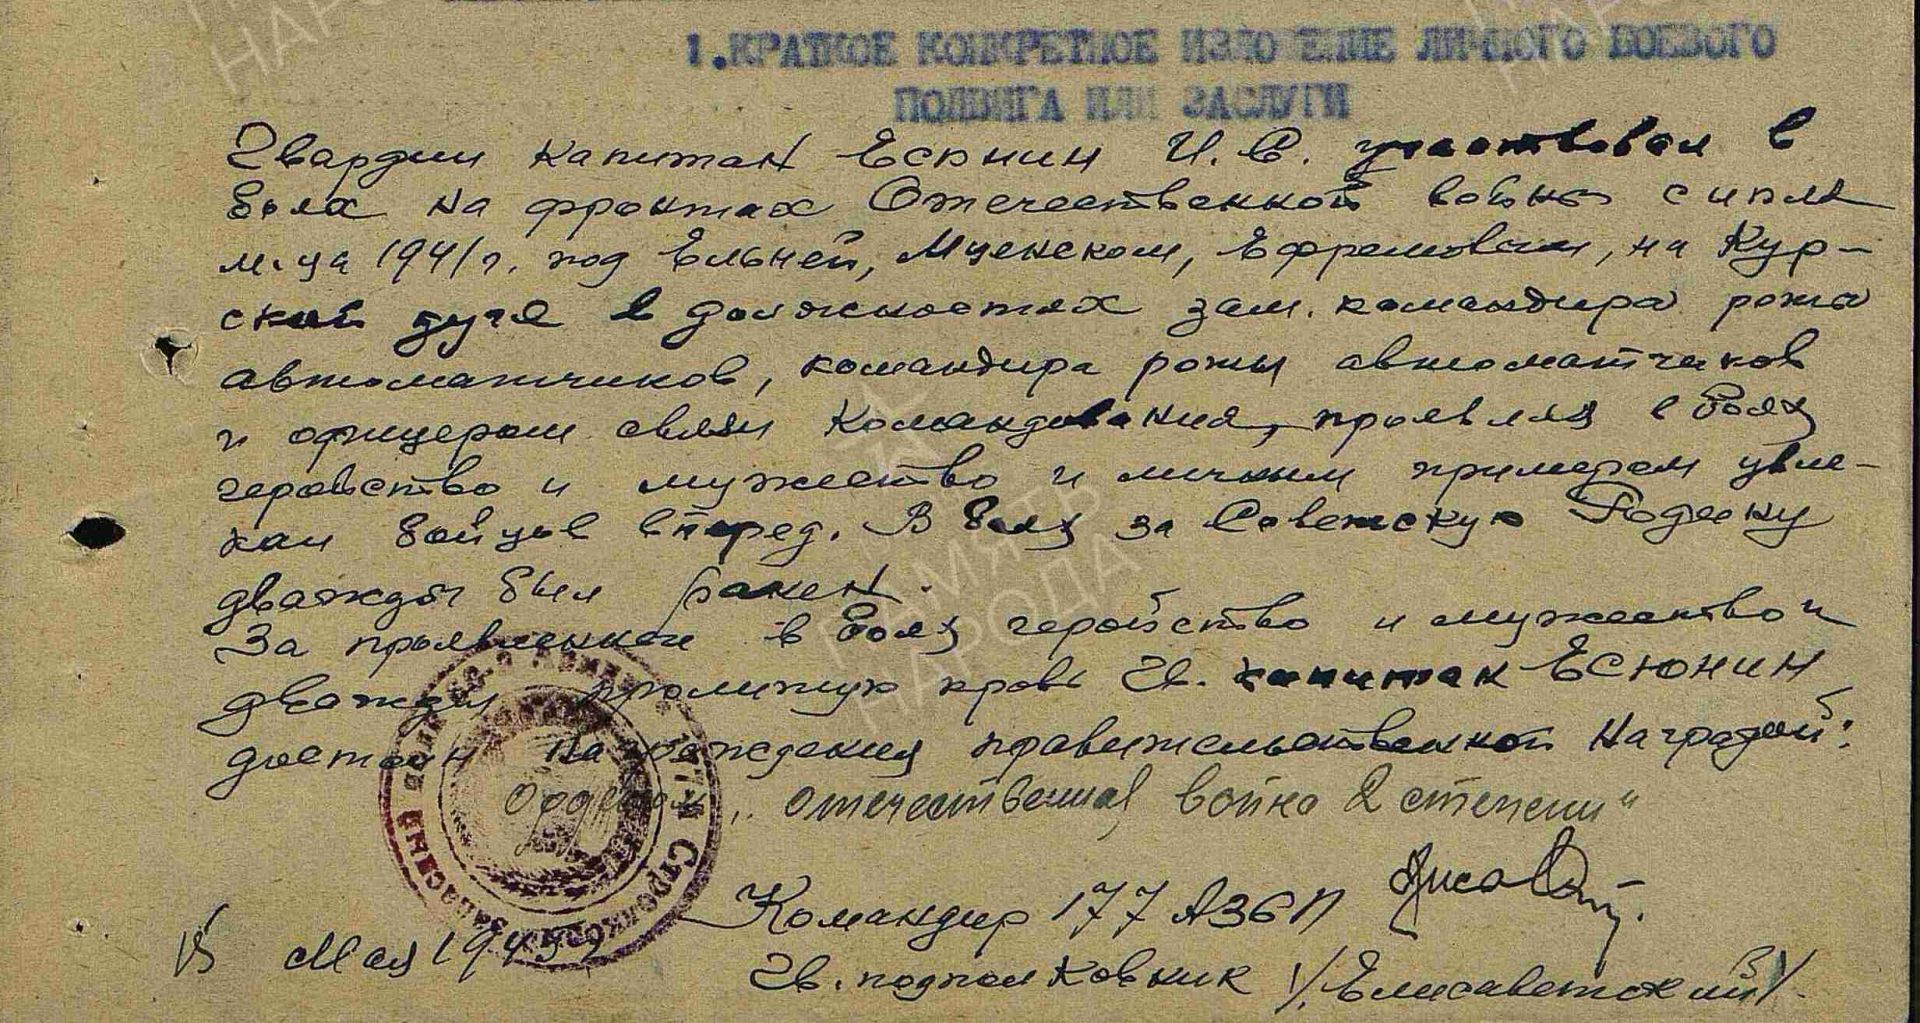 1. КРАТКОЕ КОНКРЕТНОЕ ИЗЛОЖЕНИЕ ЛИЧНОГО БОЕВОГО
ПОДВИГА ИЛИ ЗАСЛУГИ
Гвардии капитан Есюнин И.С. участвовал в
боях на фронтах Отечественной войны с июля
м-ца 1941 г. под Ельней, Мценском, Ефремовым, на Кур-
ской дуге в должностях зам. командира роты
автоматчиков, командира роты автоматчиков
и офицером связи Командования, проявляя в боях
геройство и мужество и личным примером увле-
кал бойцов вперед. В боях за Советскую Родину
дважды был ранен.
За проявленное в боях геройство и мужество и
дважды пролитую кровь Гв. капитан ЕСЮНИН
достоин награждения правительственной наградой:
Орденом „Отечественная война 2 степени"
Командир 177 АЗСП
15 мая 1945 г
Гв. подполковник /Елисаветский/.
ПАМЯТЬ
НАРОДА